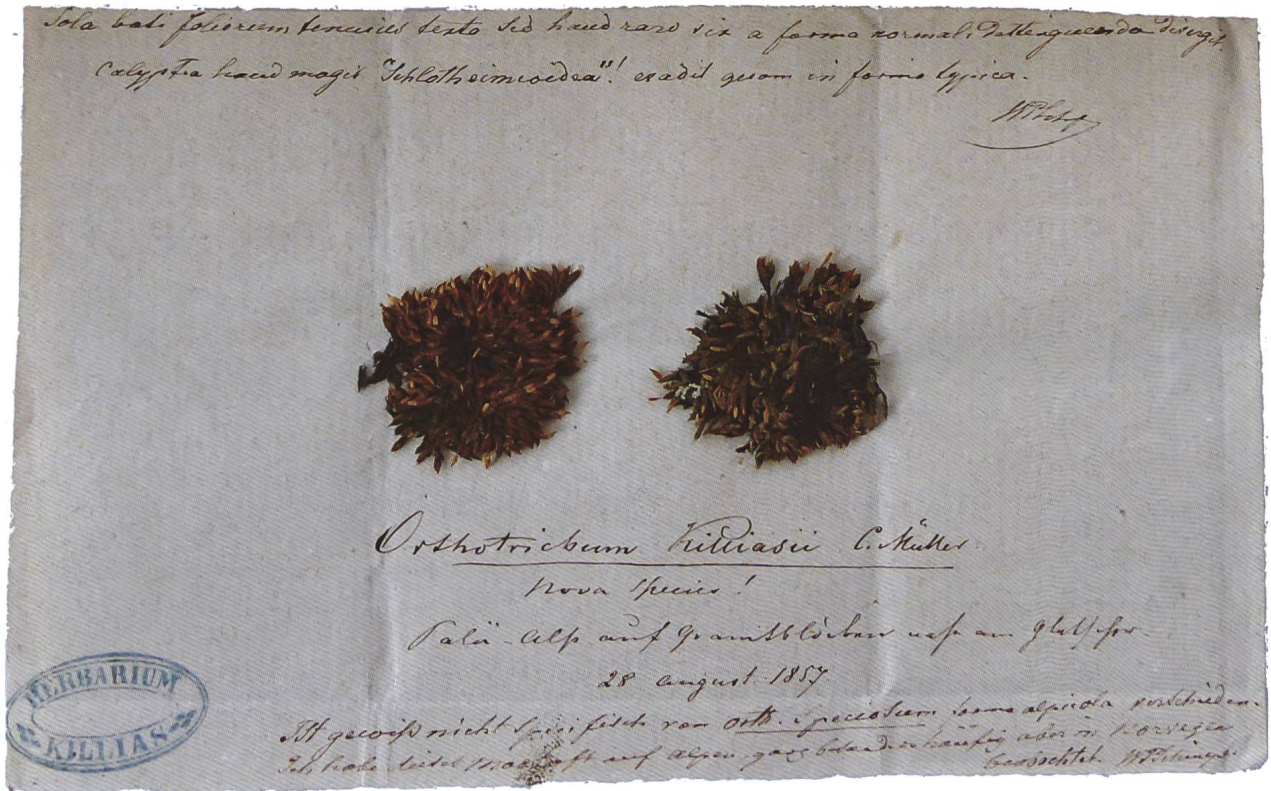 Sola basi foliorum tenuius texta sed haud raro vix a forma normali distinguenda divergit.
Calyptra haud magis "Schlotheimioidea"! evadit quam in forma typica.
WPSchpf
Orthotrichum Killiasii C. Müller
Nova Species!
Palü-Alp auf Granitblöcken nah am Gletscher.
28 August 1857
Ist gewiß nicht specifisch von Orth. speciosum forma alpicola verschieden.
Ich habe dieses Moos oft auf Alpen, ganz besonders häufig aber in Norwegen
beobachtet. WPSchimper
HERBARIUM
KILLIAS